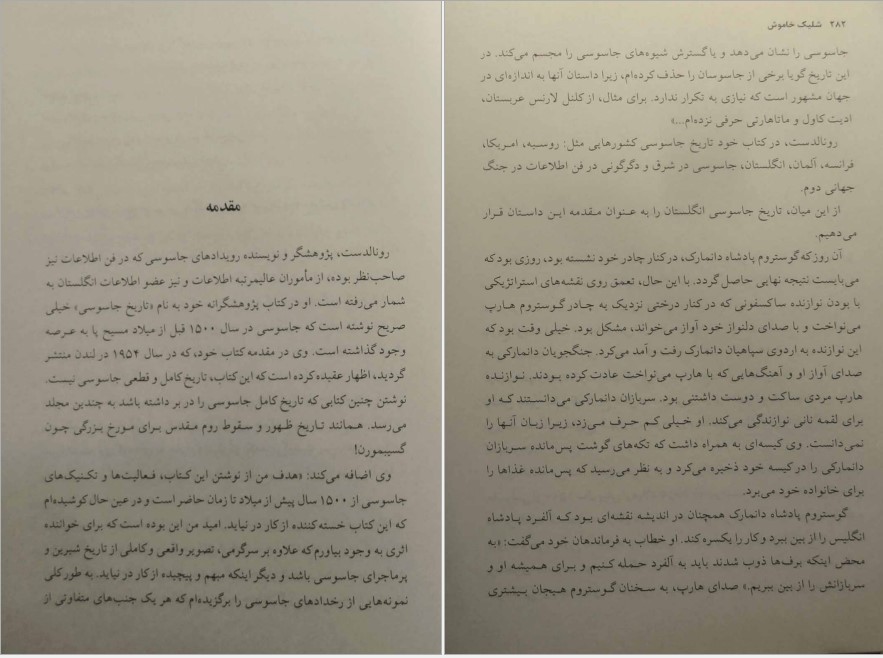 مقدمه
رونالدست، پژوهشگر و نویسنده رویدادهای جاسوسی که در فن اطلاعات نیز
صاحب‌نظر بوده، از مأموران عالیمرتبه اطلاعات و نیز عضو اطلاعات انگلستان به
شمار می‌رفته است. او در کتاب پژوهشگرانه خود به نام «تاریخ جاسوسی» خیلی
صریح نوشته است که جاسوسی در سال ۱۵۰۰ قبل از میلاد مسیح پا به عرصه
وجود گذاشته است. وی در مقدمه کتاب خود، که در سال ۱۹۵۴ در لندن منتشر
گردید، اظهار عقیده کرده است که این کتاب، تاریخ کامل و قطعی جاسوسی نیست.
نوشتن چنین کتابی که تاریخ کامل جاسوسی را در بر داشته باشد به چندین مجلد
می‌رسد. همانند تاریخ ظهور و سقوط روم مقدس برای مورخ بزرگی چون
گسیبمورن!
وی اضافه می‌کند: «هدف من از نوشتن این کتاب، فعالیت‌ها و تکنیک‌های
جاسوسی از ۱۵۰۰ سال پیش از میلاد تا زمان حاضر است و در عین حال کوشیده‌ام
که این کتاب خسته‌کننده از کار در نیاید. امید من این بوده است که برای خواننده
اثری به وجود بیاورم که علاوه بر سرگرمی، تصویر واقعی و کاملی از تاریخ شیرین و
پرماجرای جاسوسی باشد و دیگر اینکه مبهم و پیچیده از کار در نیاید. به طور کلی
نمونه‌هایی از رخدادهای جاسوسی را برگزیده‌ام که هر یک جنب‌های متفاوتی از
۲۸۲ شلیک خاموش
جاسوسی را نشان می‌دهد و یا گسترش شیوه‌های جاسوسی را مجسم می‌کند. در
این تاریخ گویا برخی از جاسوسان را حذف کرده‌ام، زیرا داستان آنها به اندازه‌ای در
جهان مشهور است که نیازی به تکرار ندارد. برای مثال، از کلنل لارنس عربستان،
ادیت کاول و ماتاهارتی حرفی نزده‌ام...»
رونالدست، در کتاب خود تاریخ جاسوسی کشورهایی مثل: روسیه، امریکا،
فرانسه، آلمان، انگلستان، جاسوسی در شرق و دگرگونی در فن اطلاعات در جنگ
جهانی دوم.
از این میان، تاریخ جاسوسی انگلستان را به عنوان مقدمه این داستان قرار
می‌دهیم.
آن روز که گوستروم پادشاه دانمارک، در کنار چادر خود نشسته بود، روزی بود که
می‌بایست نتیجه نهایی حاصل گردد. با این حال، تعمق روی نقشه‌های استراتژیکی
با بودن نوازنده ساکسفونی که در کنار درختی نزدیک به چادر گوستروم هارپ
می‌نواخت و با صدای دلنواز خود آواز می‌خواند، مشکل بود. خیلی وقت بود که
این نوازنده به اردوی سپاهیان دانمارک رفت و آمد می‌کرد. جنگجویان دانمارکی به
صدای آواز او و آهنگ‌هایی که با هارپ می‌نواخت عادت کرده بودند. نوازنده
هارپ مردی ساکت و دوست داشتنی بود. سربازان دانمارکی می‌دانستند که او
برای لقمه نانی نوازندگی می‌کند. او خیلی کم حرف می‌زد، زیرا زبان آنها را
نمی‌دانست. وی کیسه‌ای به همراه داشت که تکه‌های گوشت پس‌مانده سربازان
دانمارکی را در کیسه خود ذخیره می‌کرد و به نظر می‌رسید که پس‌مانده غذاها را
برای خانواده خود می‌برد.
گوستروم پادشاه دانمارک همچنان در اندیشه نقشه‌ای بود که آلفرد پادشاه
انگلیس را از بین ببرد و کار را یکسره کند. او خطاب به فرماندهان خود می‌گفت: «به
محض اینکه برف‌ها ذوب شدند باید به آلفرد حمله کنیم و برای همیشه او و
سربازانش را از بین ببریم.» صدای هارپ، به سخنان گوستروم هیجان بیشتری